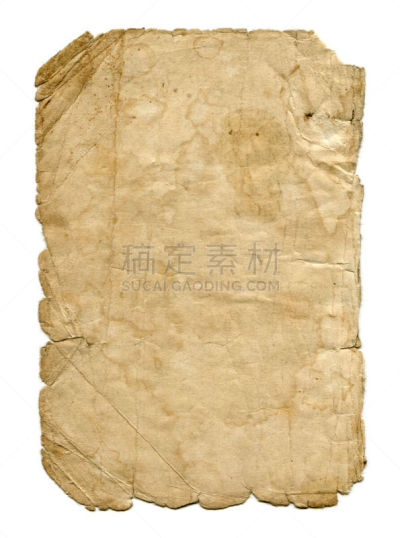 稿定素材
SUCAI.GAODING.COM